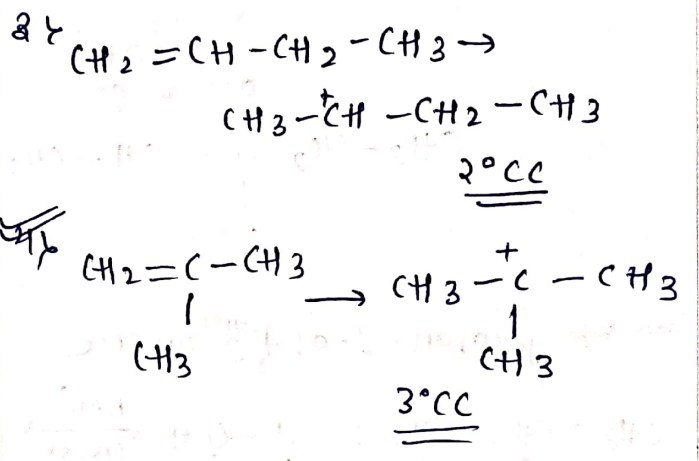 3) CH2 = CH - CH2 - CH3 →
CH3 - CH+ - CH2 - CH3
2° CC
CH2 = C - CH3 → CH3 - C+ - CH3
| |
CH3 CH3
3° CC